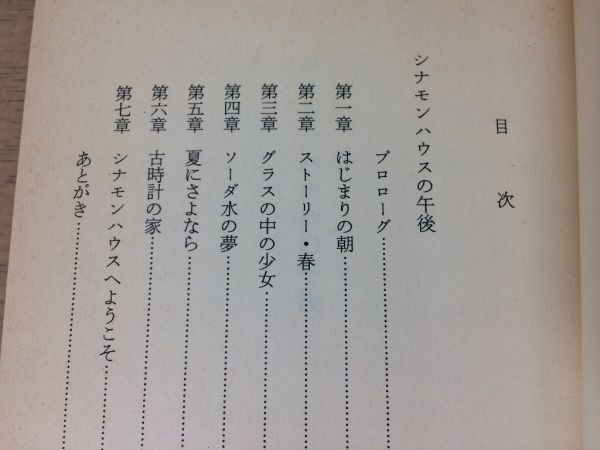 目次
シナモンハウスの午後
プロローグ
第一章 はじまりの朝
第二章 ストーリー・春
第三章 グラスの中の少女
第四章 ソーダ水の夢
第五章 夏にさよなら
第六章 古時計の家
第七章 シナモンハウスへようこそ
あとがき